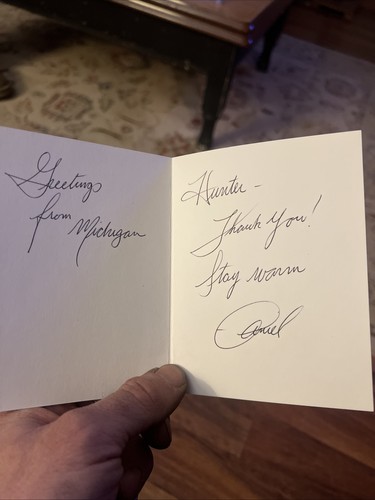 Greetings
from Michigan
Hunter -
Thank You!
Stay warm